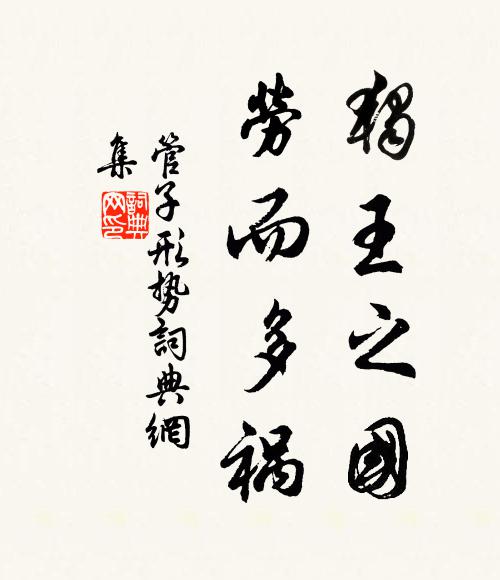 獨王之國
勞而多禍
管子形勢詞典網
集
詞典
网印